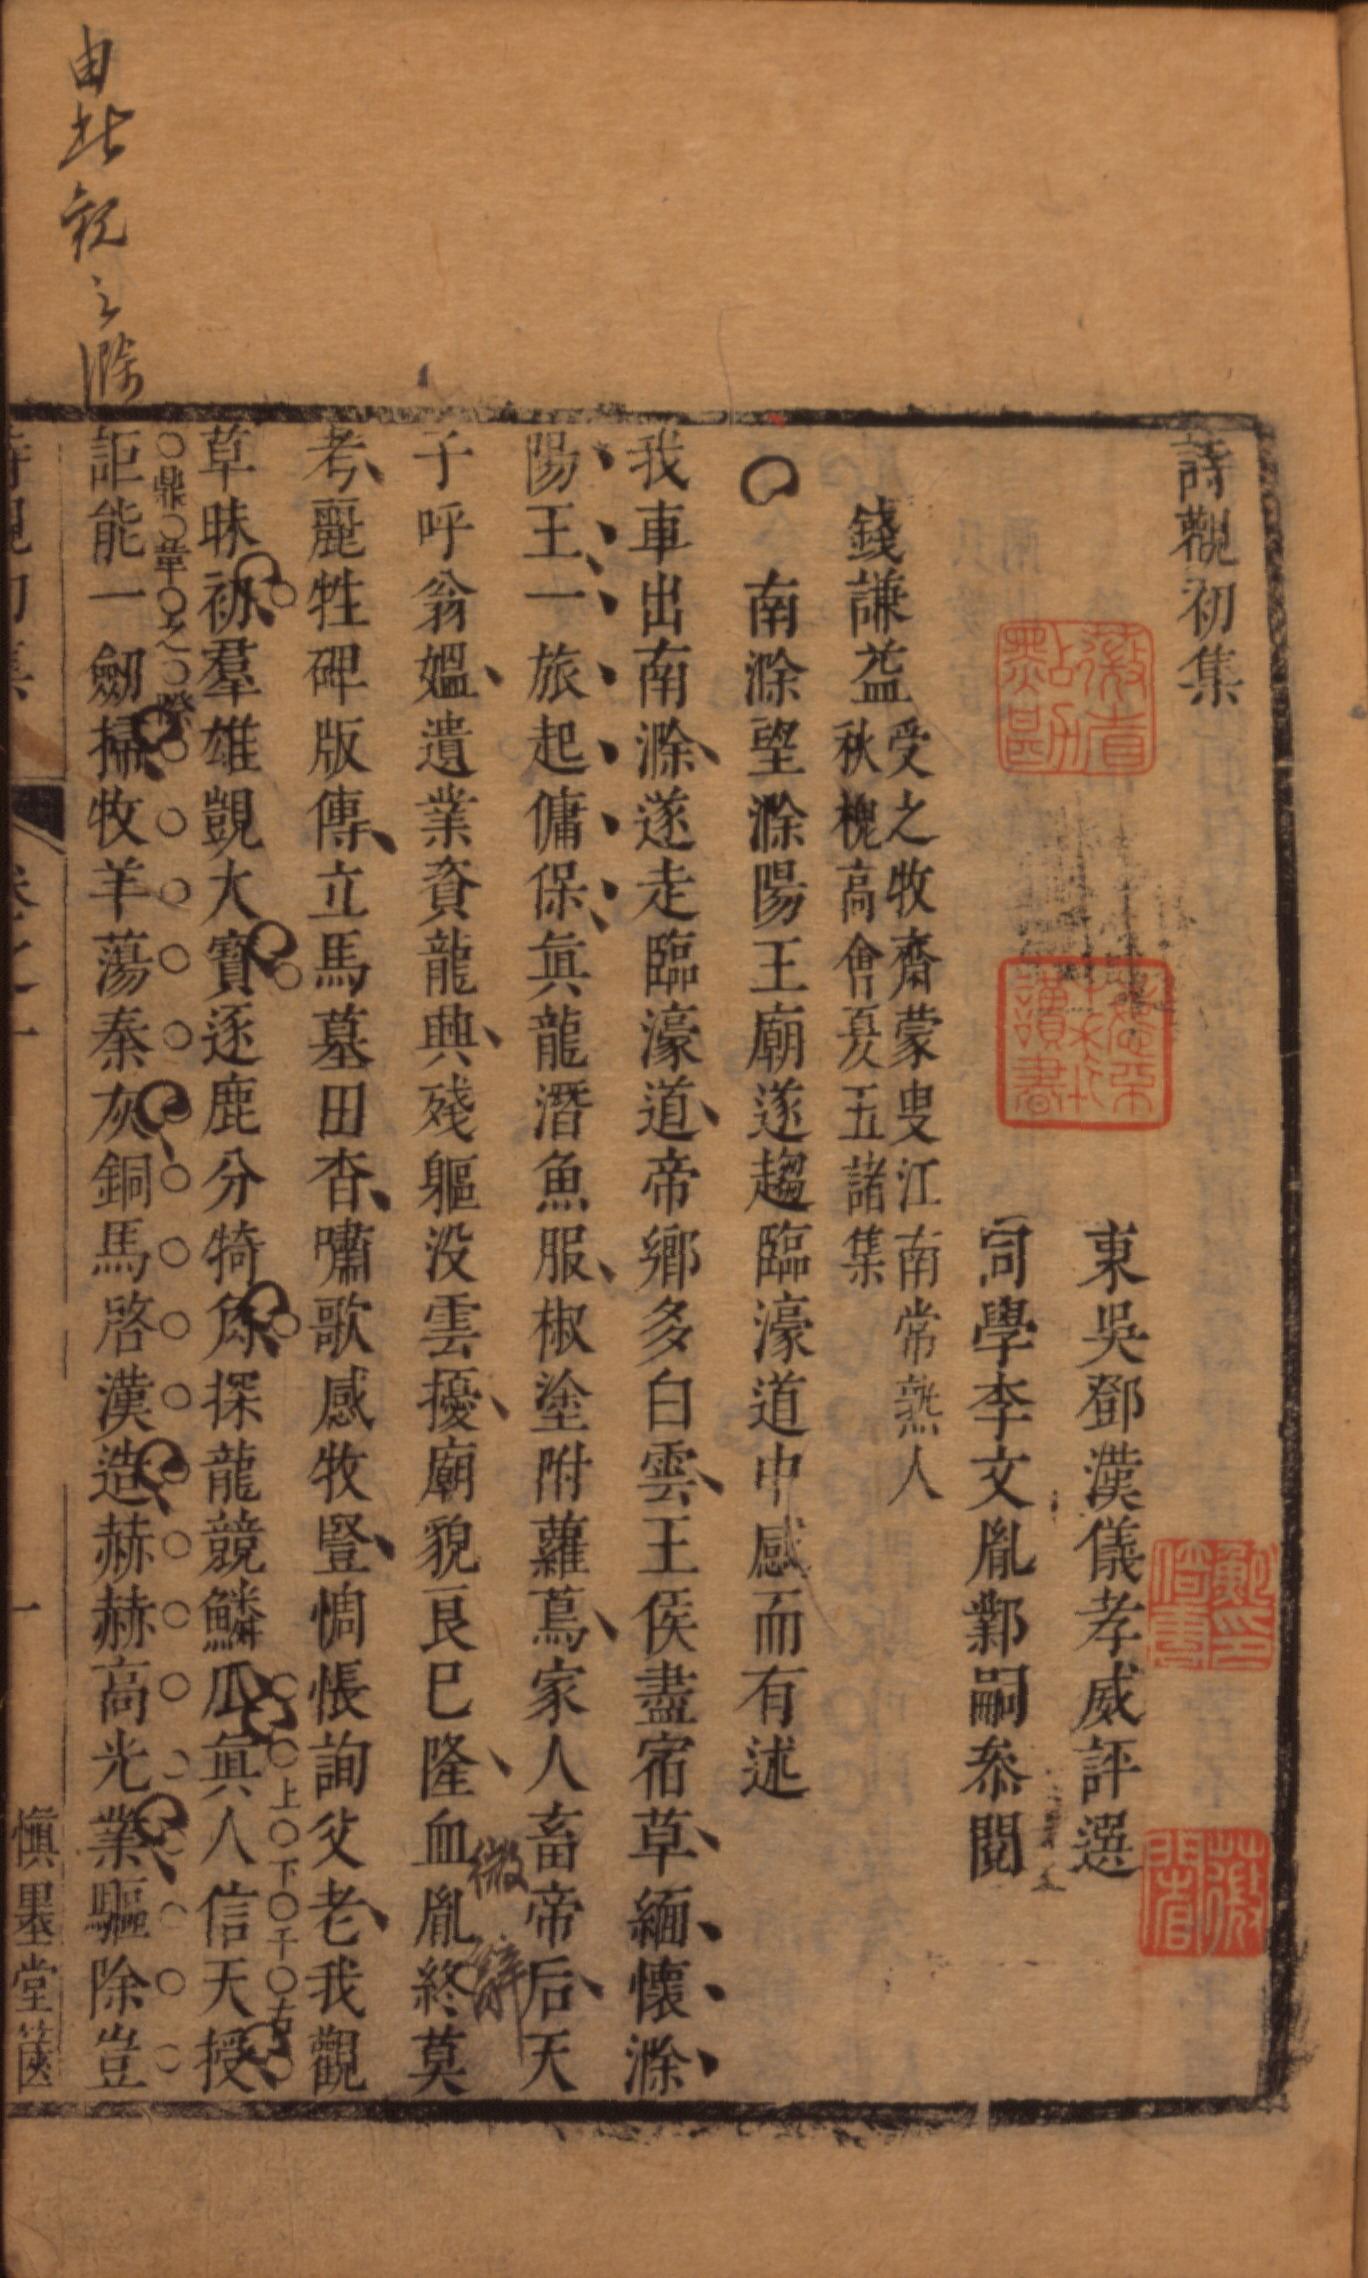 詩觀初集
東吳鄧漢儀孝威評選
同學李文胤鄴嗣叅閱
錢謙益
受之牧齋蒙叟江南常熟人
秋槐高會夏五諸集
南滁望滁陽王廟遂趨臨濠道中感而有述
我車出南滁遂走臨濠道帝鄉多白雲王侯盡宿草緬懷滁
陽王一旅起傭保眞龍潛魚服椒塗附蘿蔦家人畜帝后天
微辭
子呼翁媼遺業資龍興殘軀沒雲擾廟貌良巳隆血胤終莫
考麗牲碑版傳立馬墓田杳嘯歌感牧豎惆悵詢父老我觀
上下千古
草昧初羣雄覬大寶逐鹿分犄角探龍競鱗瓜眞人信天授
鼎革之際
詎能一劒掃牧羊蕩秦灰銅馬啓漢造赫赫高光業驅除豈
由此觀之滁
詩觀初集
卷之一
一
慎墨堂